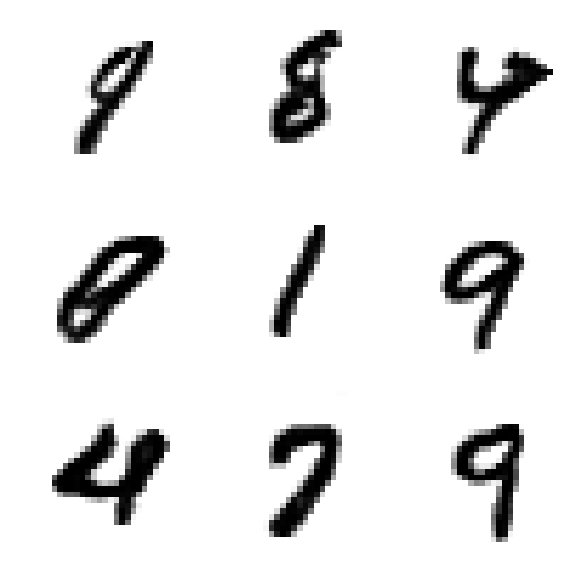 9 8 4
0 1 9
4 7 9